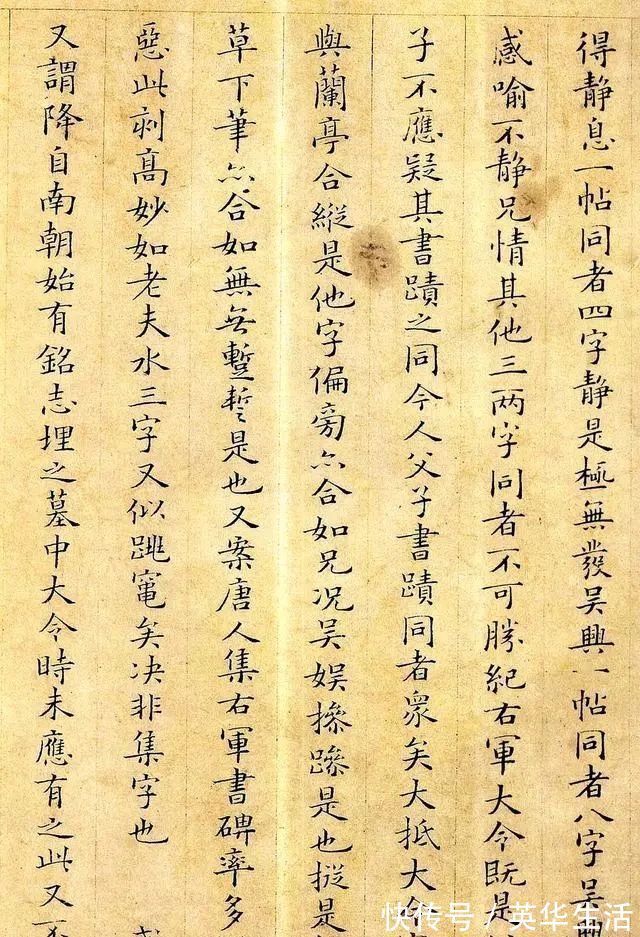 得静息一帖同者四字静是極無發吴興一帖同者八字吴興
感喻不静兄情其他三两字同者不可勝紀右軍大令既是
子不應疑其書蹟之同今人父子書蹟同者衆矣大抵大令
與蘭亭合縱是他字偏旁亦合如兄况吴娱摻蹤是也摐是
草下筆亦合如無無蹔誓是也又案唐人集右軍書碑率多
惡此刻髙妙如老夫水三字又似跳竃矣决非集字也
又謂降自南朝始有銘志埋之墓中大令時未應有之此又不
快传号/英华生活